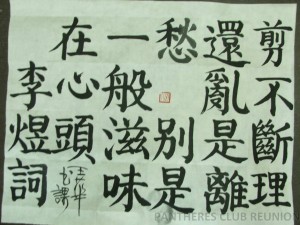 剪不斷理
還亂是離
愁別是
一般滋味
在心頭
李煜詞
PANTHERES CLUB REUNION